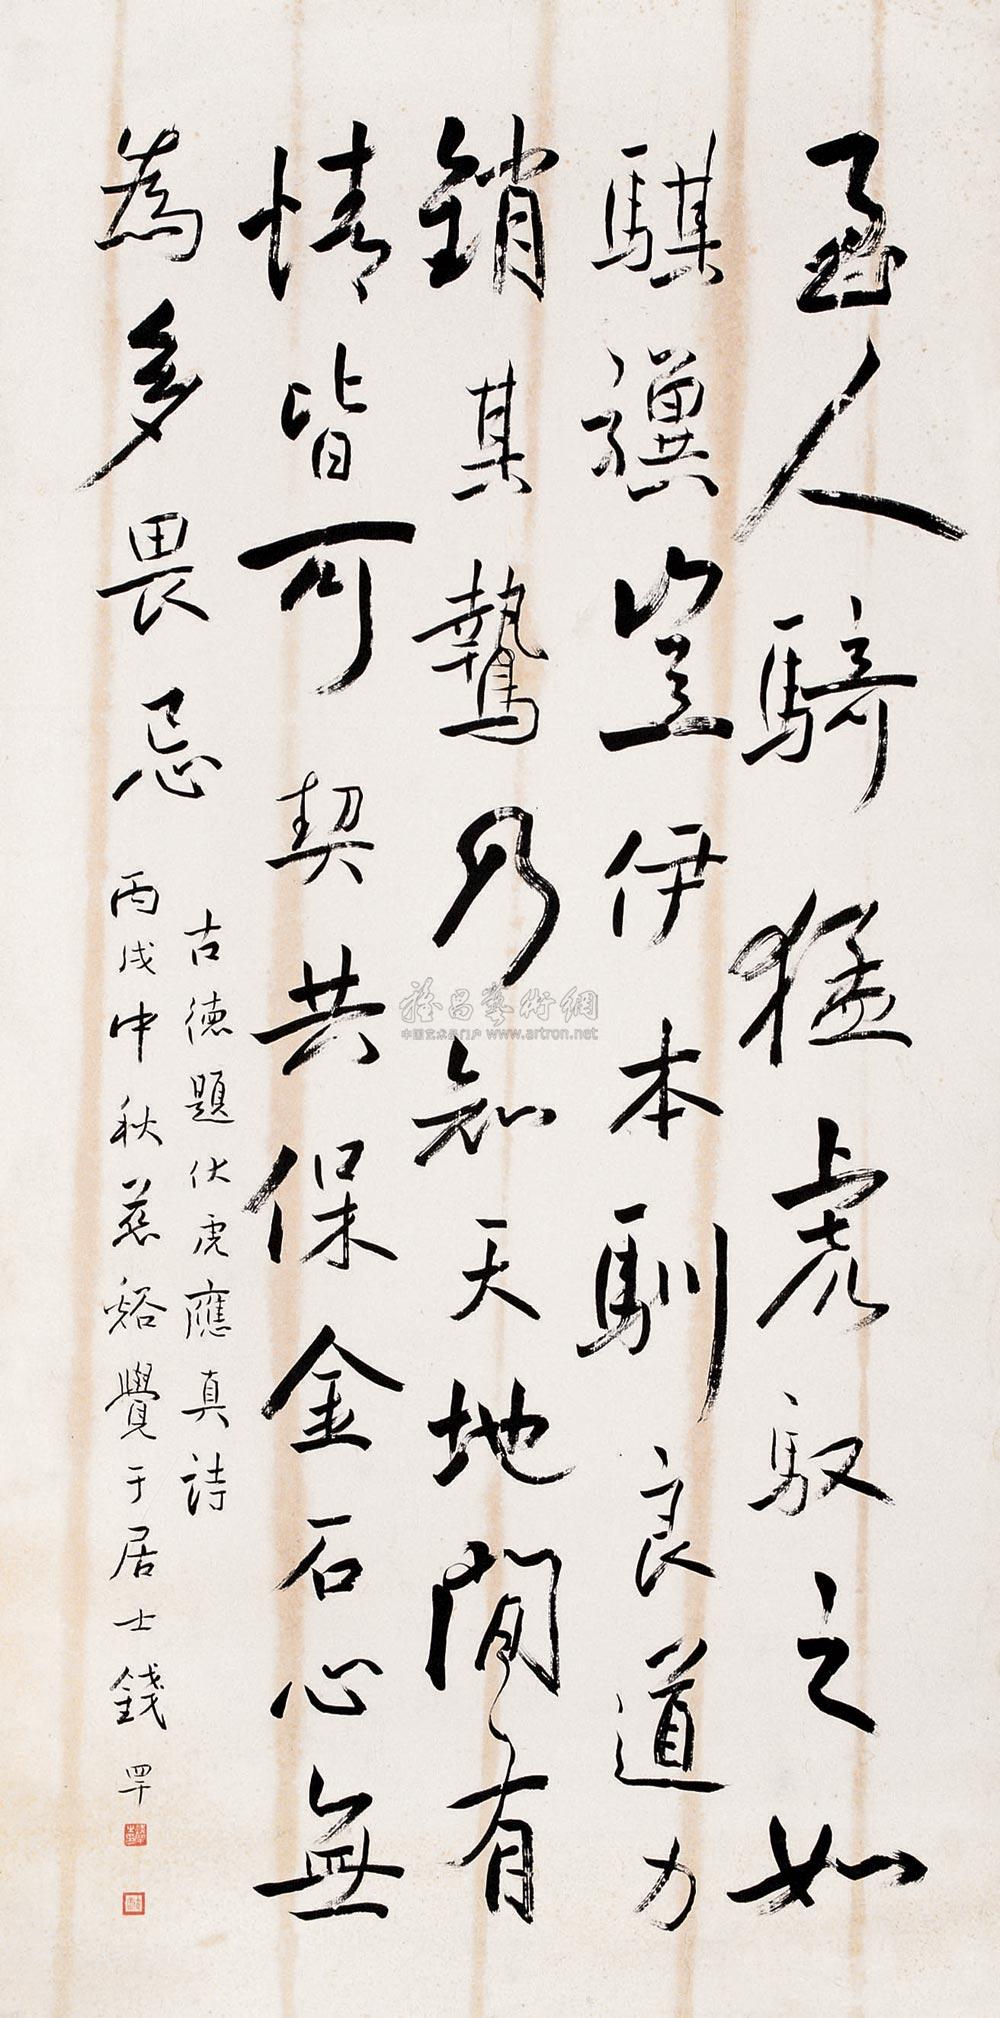 至人騎猛虎馭之如
騏驥豈伊本馴良道力
銷其鷙乃知天地間有
情皆可契共保金石心無
為多畏忌
古德題伏虎應真詩
丙戌中秋慈谿覺于居士錢罕
雅昌藝術網
中国艺术品门户 www.artron.net